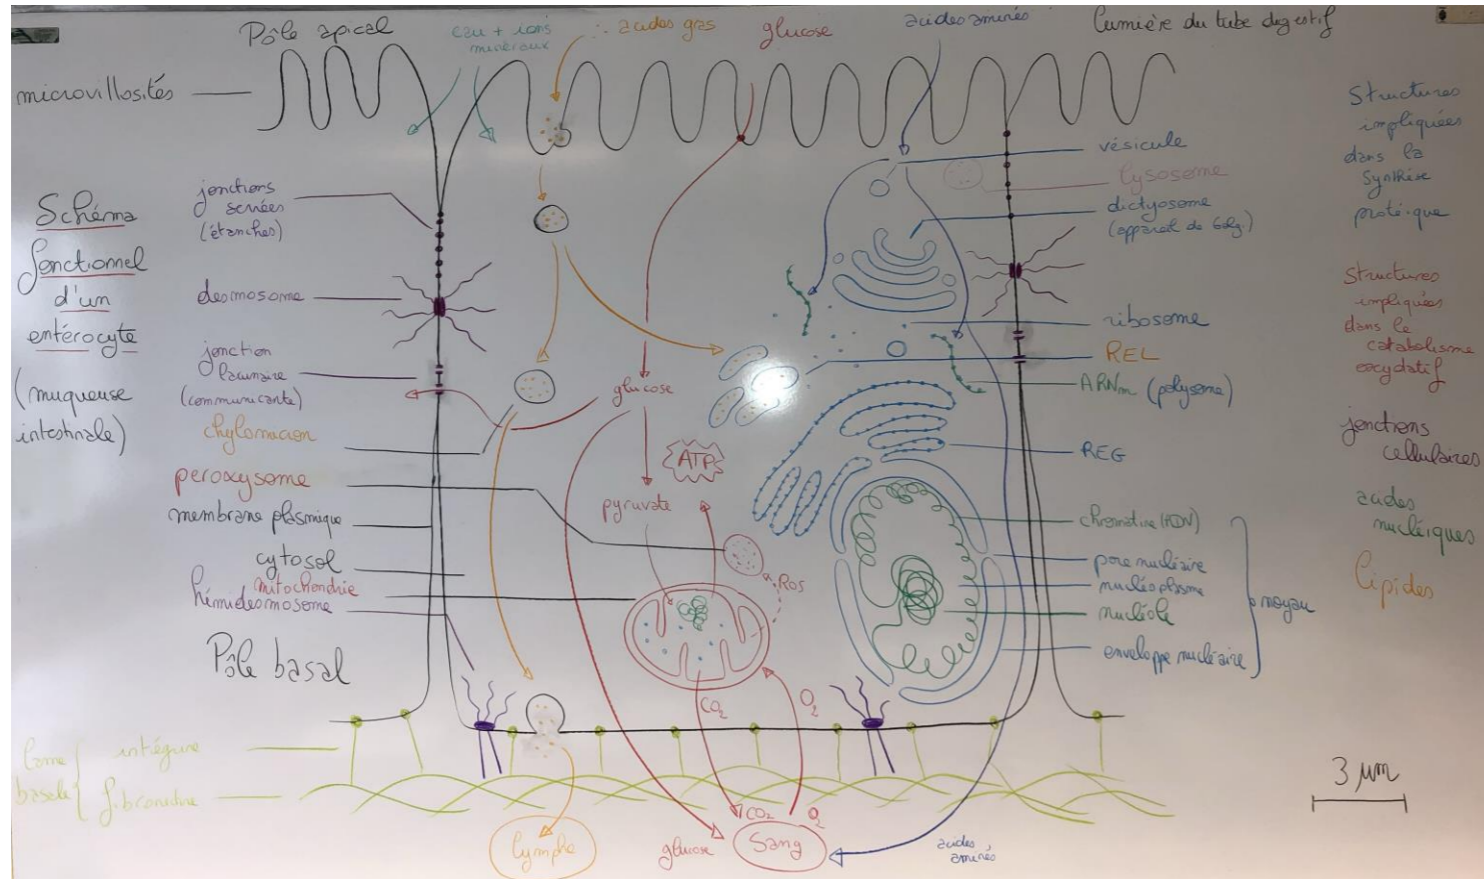 Pôle apical
eau + ions
minéraux
acides gras
glucose
acides aminés
Lumière du tube digestif
microvillosités
Schéma
fonctionnel
d'un
entérocyte
(muqueuse
intestinale)
jonctions
serrées
(étanches)
desmosome
jonction
lacunaire
(communicante)
chylomicron
peroxysome
membrane plasmique
cytosol
mitochondrie
hémidesmosome
Pôle basal
lame
basale
intégrine
fibronectine
glucose
ATP
pyruvate
ROS
CO2
O2
CO2
O2
lymphe
glucose
Sang
acides
aminés
vésicule
lysosome
dictyosome
(appareil de Golgi)
ribosome
REL
ARNm (polysome)
REG
chromatine (ADN)
pore nucléaire
nucléoplasme
nucléole
enveloppe nucléaire
noyau
Structures
impliquées
dans la
synthèse
protéique
Structures
impliquées
dans le
catabolisme
oxydatif
jonctions
cellulaires
acides
nucléiques
lipides
3 µm